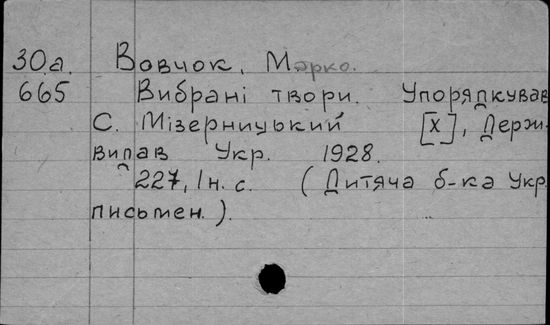 30.а. Вовчок, Марко.
665 Вибрані твори. Упорядкував
С. Мізерницький [Х], Держ.
видав Укр. 1928.
227, 1 н. с. (Дитяча б-ка Укр.
письмен.).